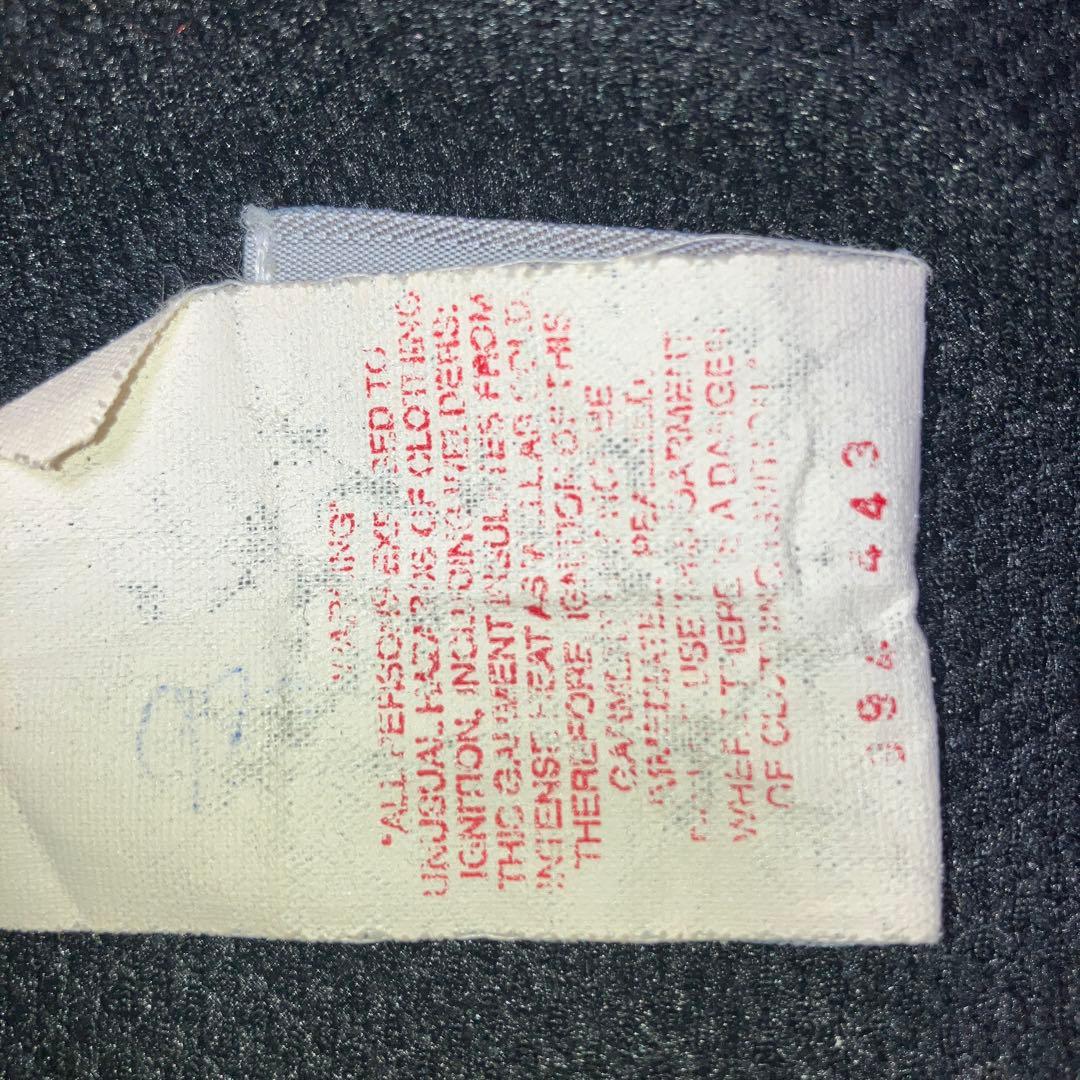 WARNING
"ALL PERSONS EXPOSED TO
UNUSUAL HAZARDS OF CLOTHING
IGNITION, INCLUDING WELDERS:
THIS GARMENT INSULATES FROM
INTENSE HEAT AS WELL AS COLD.
THEREFORE IGNITION OF THIS
GARMENT NOT BE
IMMEDIATELY
USE THIS GARMENT
WHERE THERE IS A DANGER
OF CLOTHING IGNITION."
994 443